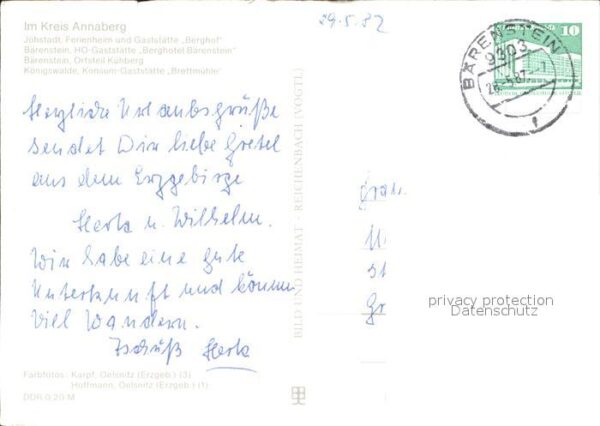 Im Kreis Annaberg
Jöhstadt, Ferienheim und Gaststätte „Berghof"
Bärenstein, HO-Gaststätte „Berghotel Bärenstein"
Bärenstein, Ortsteil Kühberg
Königswalde, Konsum-Gaststätte „Brettmühle"
29.5.82
BÄRENSTEIN
9303
10
Herzliche Urlaubsgrüße
sendet Dir liebe Gretel
aus dem Erzgebirge
Herta u. Wilhelm.
Wir habe eine gute
Unterkunft und können
viel Wandern.
Tschüß Herta
BILD UND HEIMAT · REICHENBACH (VOGTL)
privacy protection
Datenschutz
Farbfotos: Karpf, Oelsnitz (Erzgeb.) (3)
Hoffmann, Oelsnitz (Erzgeb.) (1)
DDR 0,20 M